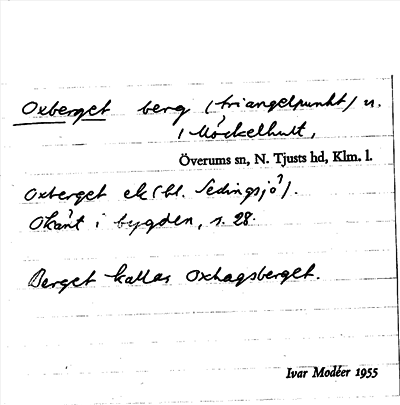 Oxberget berg (triangelpunkt) n.
i Möckelhult,
Överums sn, N. Tjusts hd, Klm. l.
Oxberget ek (bl. Sedingsjö).
Okänt i bygden, s. 28.
Berget kallas Oxhagsberget.
Ivar Modéer 1955